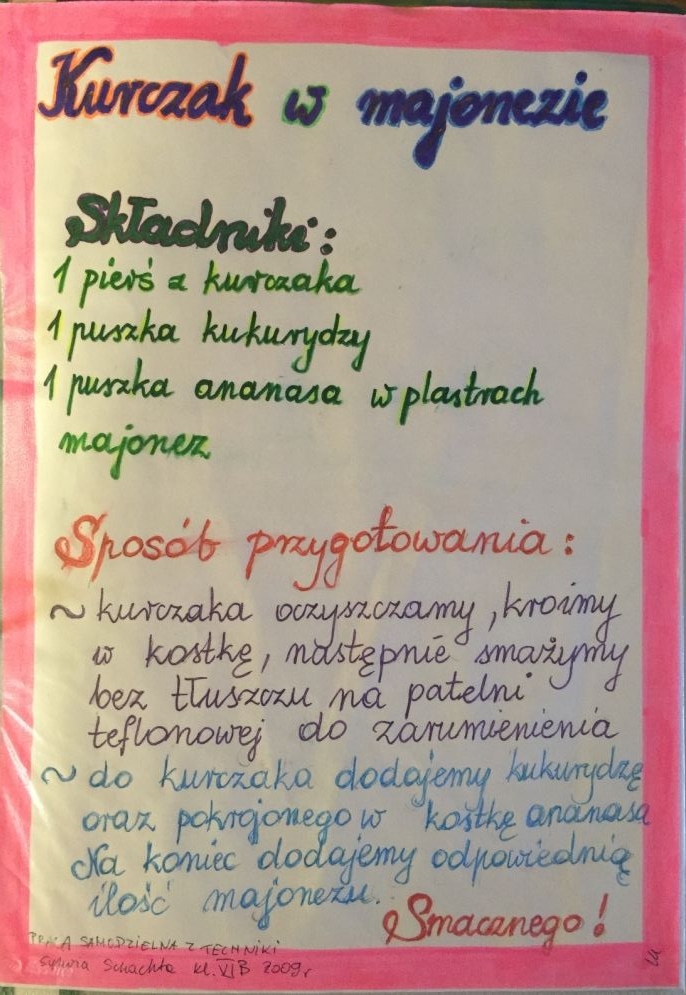 Kurczak w majonezie
Składniki:
1 pierś z kurczaka
1 puszka kukurydzy
1 puszka ananasa w plastrach
majonez
Sposób przygotowania:
~ kurczaka oczyszczamy, kroimy
w kostkę, następnie smażymy
bez tłuszczu na patelni
teflonowej do zarumienienia
~ do kurczaka dodajemy kukurydzę
oraz pokrojonego w kostkę ananasa
Na koniec dodajemy odpowiednią
ilość majonezu.
Smacznego!
PRACA SAMODZIELNA Z TECHNIKI
Sylwia Schachta kl. VI B 2009r